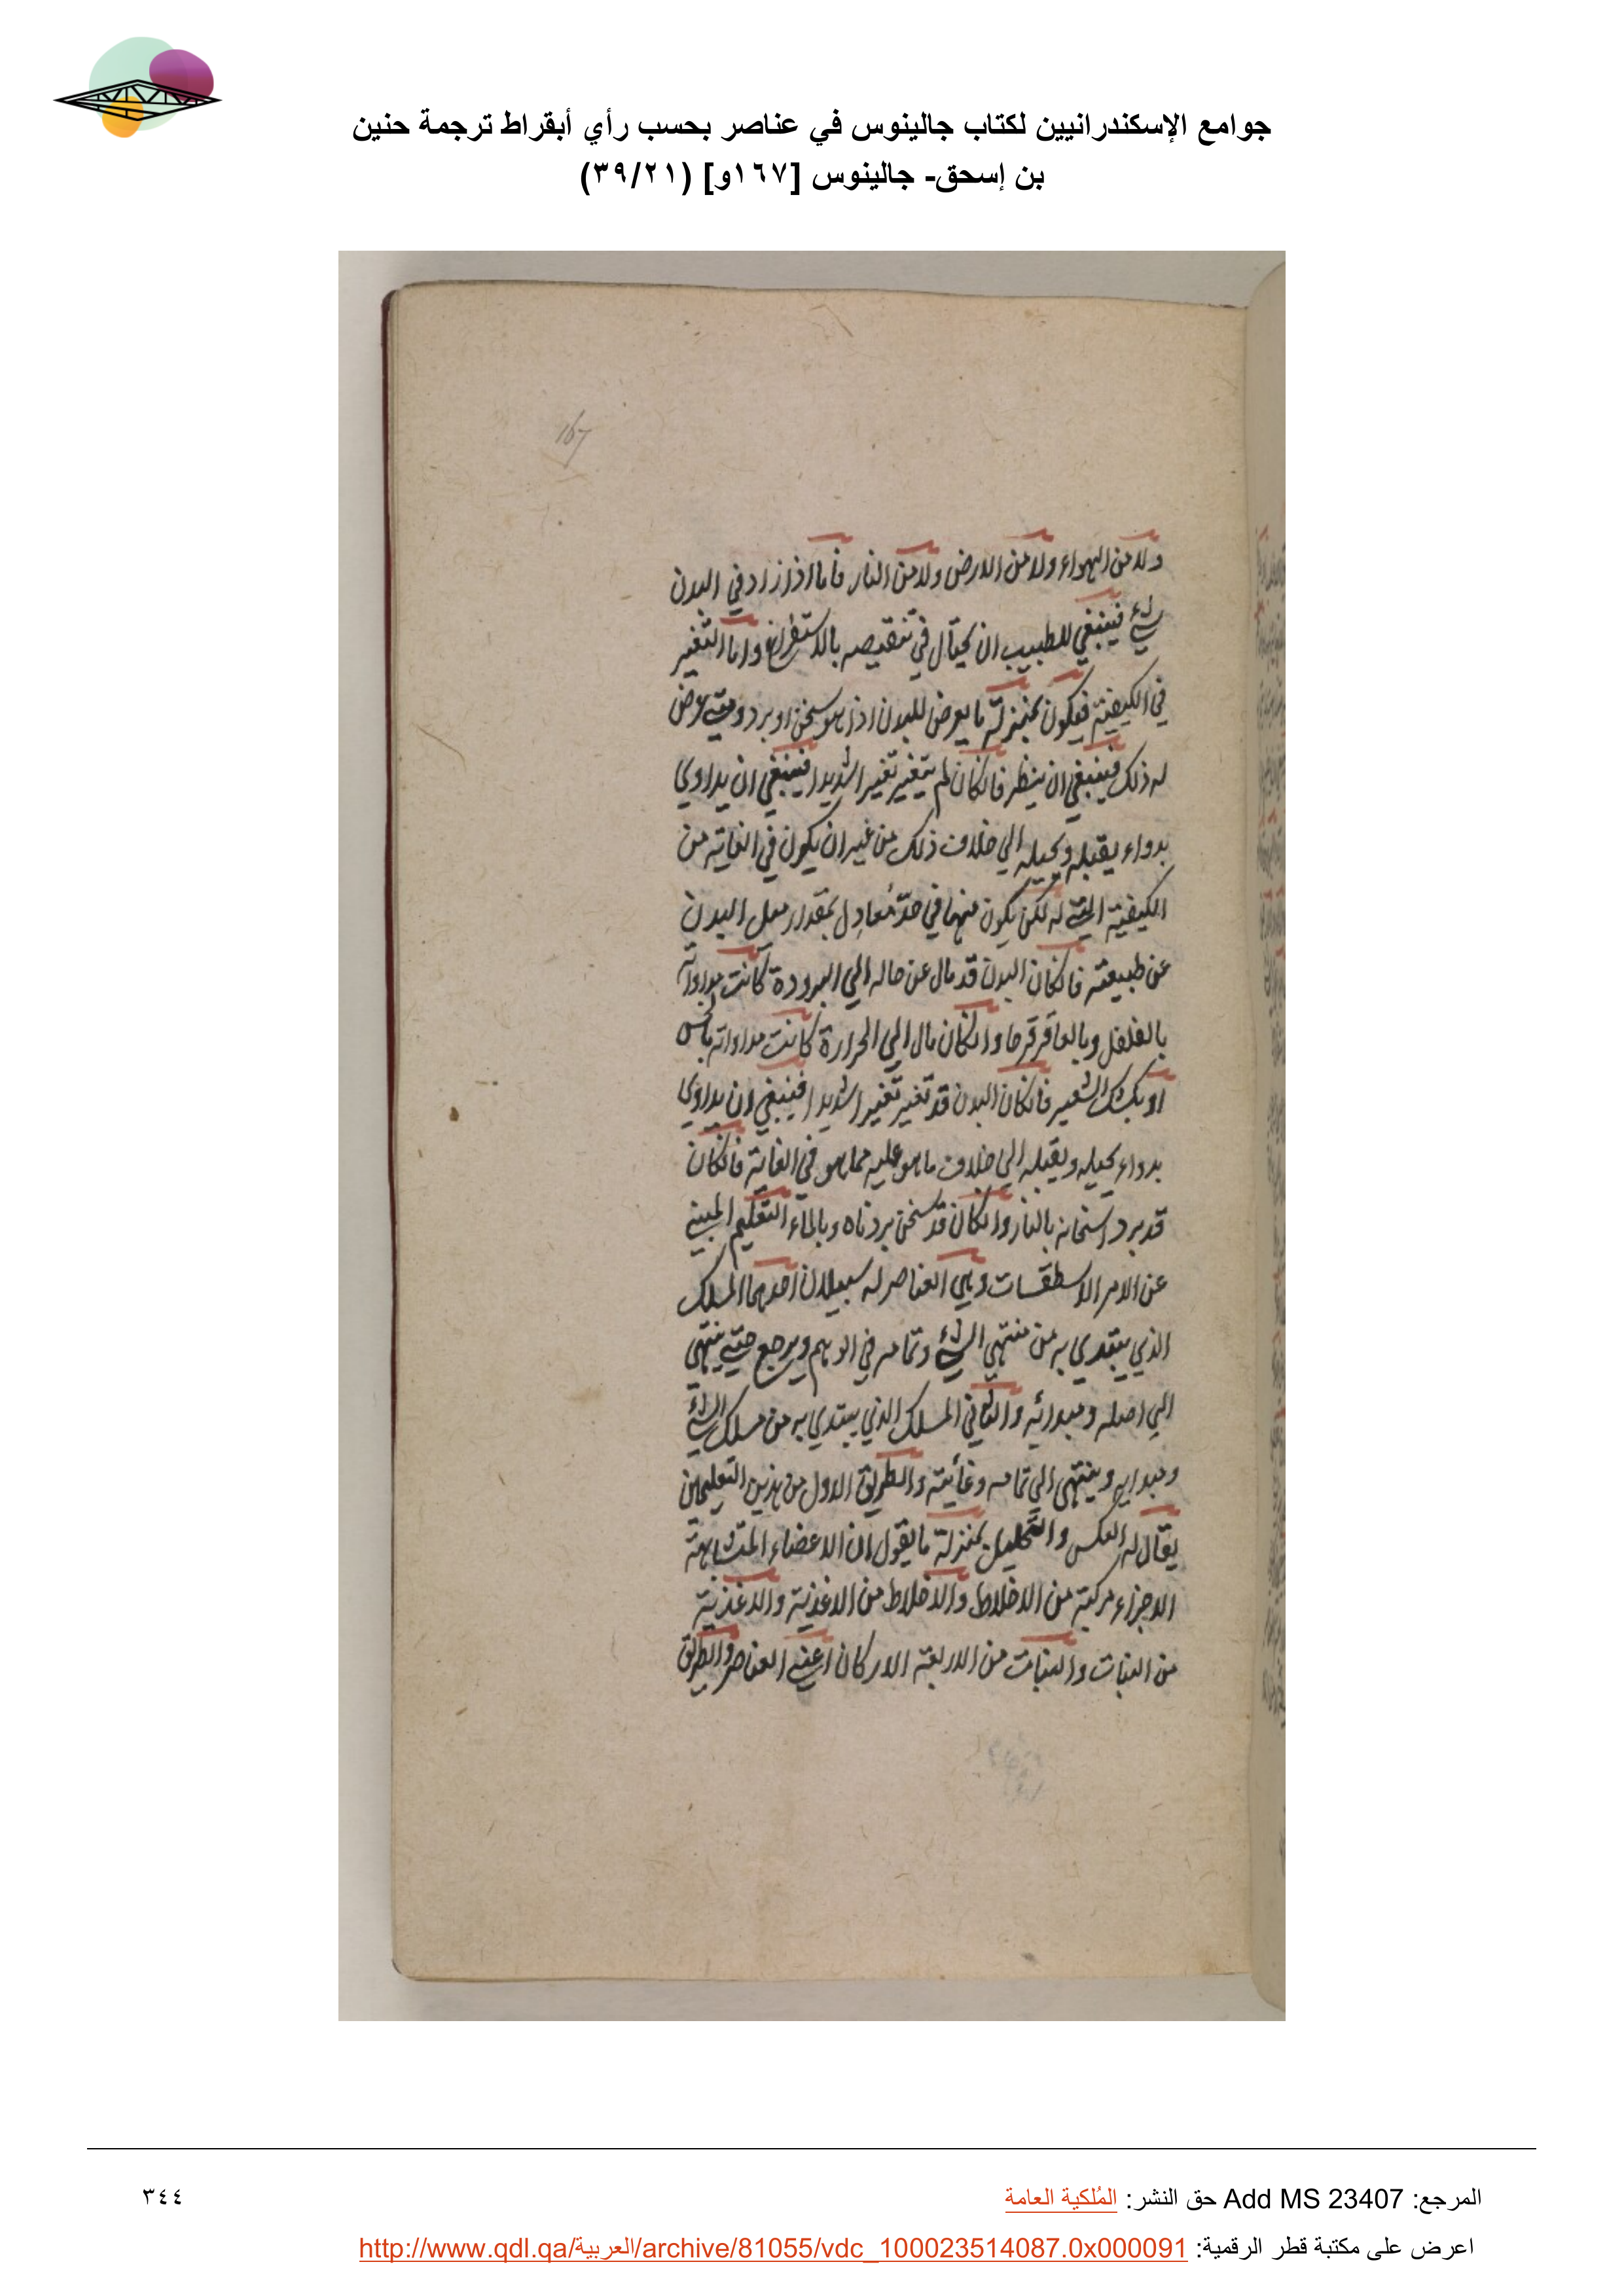 جوامع الإسكندرانيين لكتاب جالينوس في عناصر بحسب رأي أبقراط ترجمة حنين
بن إسحق- جالينوس [١٦٧و] (٣٩/٢١)
167
ولا من الهواء ولا من الارض ولا من النار فاما اذا زاد في البدن
شيء فينبغي للطبيب ان يحتال في تنقيصه بالاستفراغ واما التغير
في الكيفية فيكون بمنزلة ما يعرض للبدن اذا هو سخن او برد ومتى عرض
له ذلك فينبغي ان ينظر فانكان لم يتغير تغيرا شديدا فينبغي ان يداوي
بدواء يقبله ويحيله الي خلاف ذلك من غير ان يكون في الغاية من
الكيفية التي له لكن يكون منها في حدّ مُعادِل بمقدار ميل البدن
عن طبيعته فانكان البدن قد مال عن حاله الي البرودة كانت مداواته
بالفلفل وبالعاقرقرحا وانكان مال الي الحرارة كانت مداواته بالخس
او بكشك الشعير فانكان البدن قد تغير تغيرا شديدا فينبغي ان يداوي
بدواء يحيله ويقبله الي خلاف ما هو عليه مما هو في الغاية فانكان
قد برد اسخانه بالنار وانكان قد سخن بردناه وبالماء التعليم المبني
عن الامر الاسطقسات وهي العناصر له سبيلان احدهما المسلك
الذي يبتدي به من منتهي الشيء وتمامه في الوهم ويرجع حتى ينتهي
الي اصله ومبدائه والثاني المسلك الذي يبتدي به من مسلك الشيء
ومبدايه وينتهي الي تمامه وغائيته والطريق الاول من هذين التعليمين
يقال له العكس والتحليل بمنزلة ما يقول ان الاعضاء المتشابهة
الاجزاء مركبة من الاخلاط والاخلاط من الاغذية والاغذية
من النبات والنبات من الاربعة الاركان اعني العناصر والطريق
المرجع: Add MS 23407 حق النشر: المُلكية العامة
٣٤٤
اعرض على مكتبة قطر الرقمية: http://www.qdl.qa/العربية/archive/81055/vdc_100023514087.0x000091